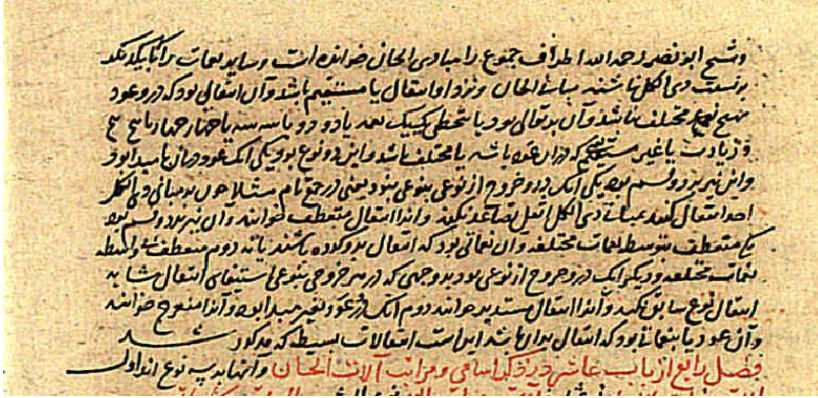 و شیخ ابو نصر رحمه الله اطراف جموع را مبادی الحان خوانده است و سایر نغمات را که با یکدیگر
بر نسبت ذی الکل باشند مبانی الحان و نزد او انتقال یا مستقیم باشد و آن انتقالی بود که در و عود
بهیچ نوع مختلف نباشد و آن بر توالی بود یا بتخطی یکیک بعد یا دو دو یا سه سه یا چهار چهار یا پنج پنج
و زیادت یا غیر مستقیم که در آن عود باشد یا مختلف باشد و این دو نوع بود یکی آنک عود در آن با مبدا بود
و این نیز بر دو قسم بود یکی آنک در و خروج از نوعی بنوعی بنود یعنی در جمع تام مثلا چون بر مبانی ذی الکل
احد انتقال کنند بمبانی ذی الکل اثقل تصاعد نکنند و آنرا انتقال منعطف خوانند و آن نیز بر دو قسم بود
یکی منعطف بتوسط نغمات مختلفه و آن نغماتی بود که انتقال برو کرده باشند یا نه دوم منعطف بی واسطه
نغمات مختلفه و دیگر آنک در و خروج از نوعی بود بر وجهی که در هر خروجی بنوعی استیفای انتقال مشابه
انتقال نوع سابق نکنند و آنرا انتقال مستدیر خوانند دوم آنک در عود بغیر مبدا بود و آنرا منعرج خوانند
و آن عود یا بنغماتی بود که انتقال بر آن باشد اینست انتقالات بسیطه که مذکور شد
فصل رابع از باب عاشر در ذکر اسامی و مراتب آلات الحان و آنها بر سه نوع اند اول